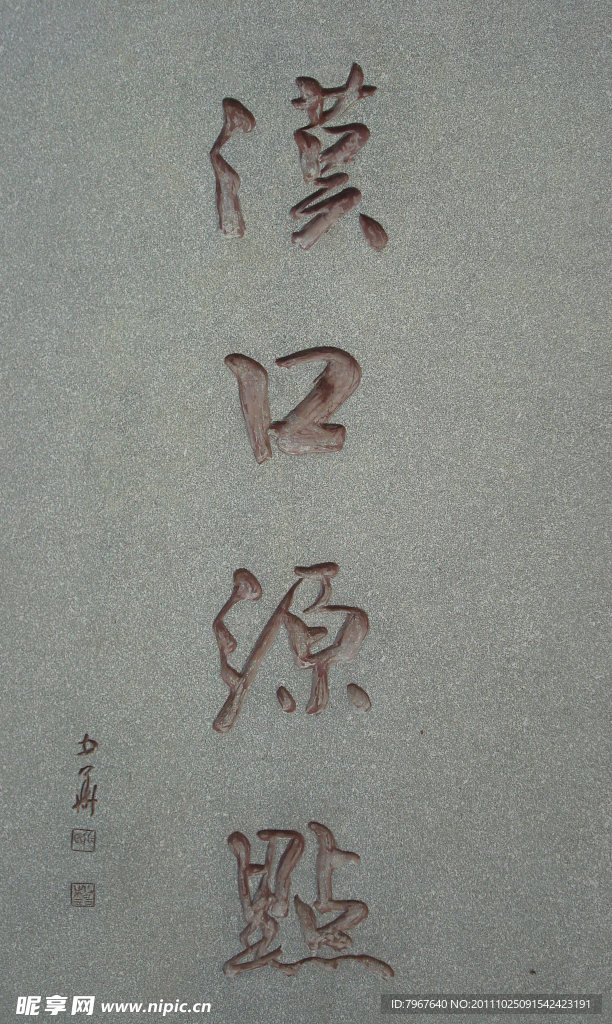 漢口源點
昵享网 www.nipic.cn
ID:7967640 NO:20111025091542423191